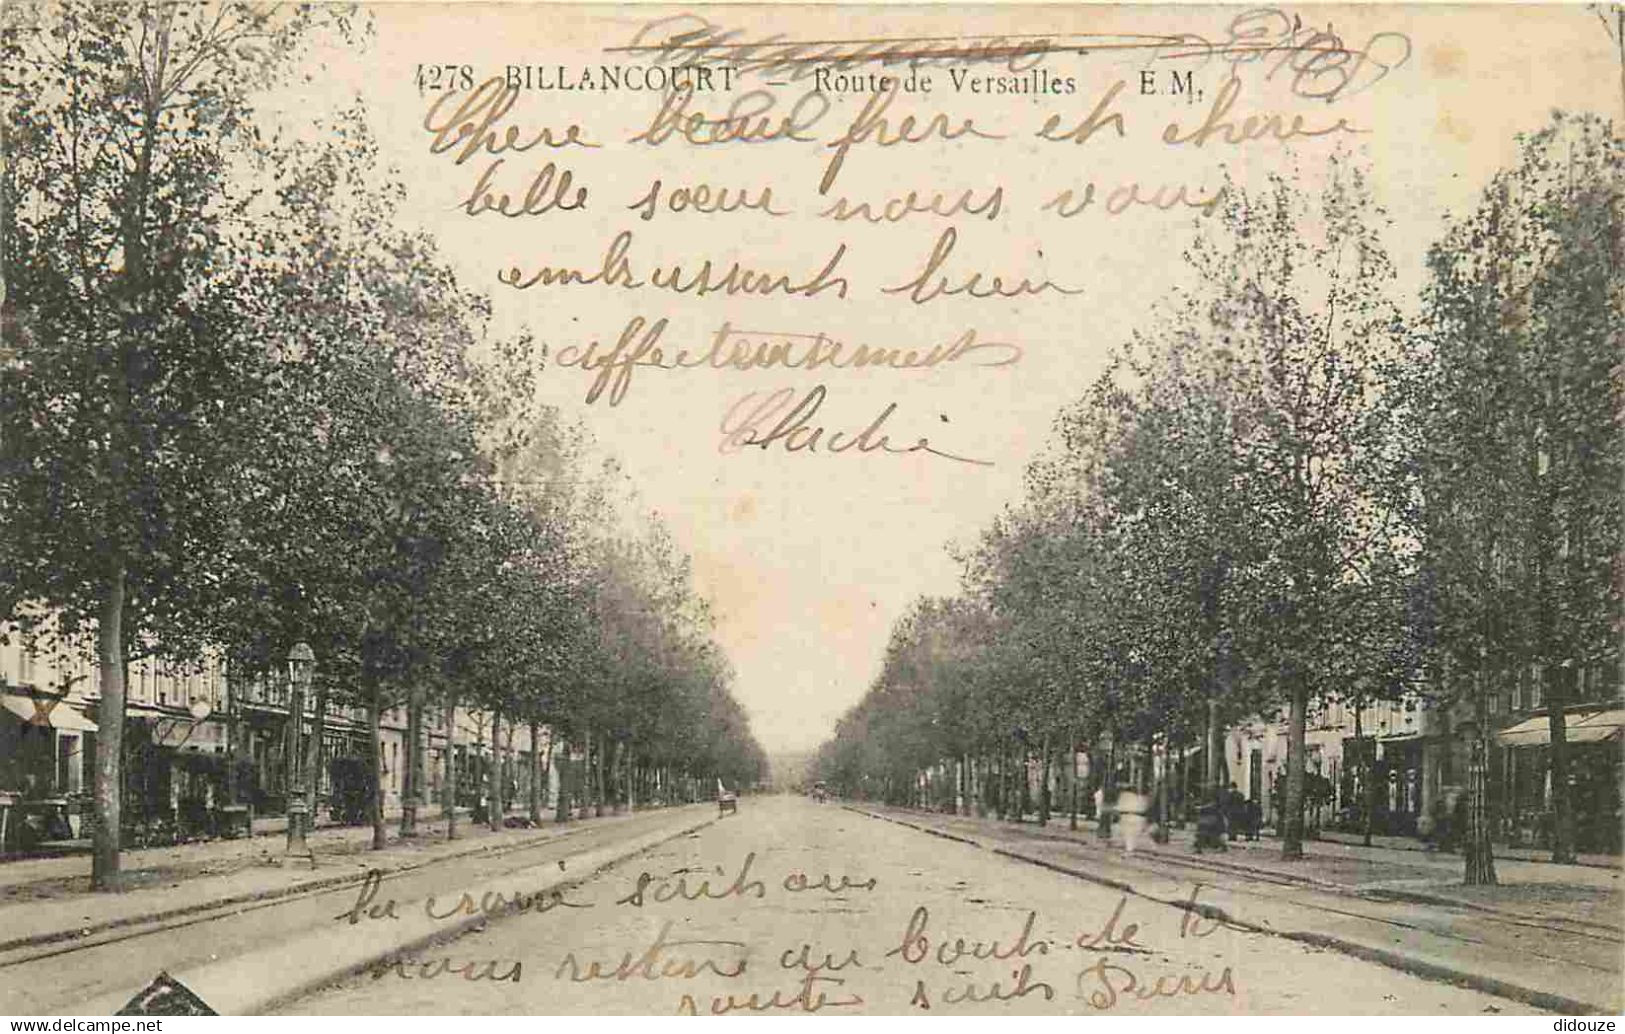 4278. BILLANCOURT — Route de Versailles E. M.
Chere beau frere et cherie
belle sœur nous vous
embrassent bien
affecteusement
la craix sait ou
nous restine au bout de la
route sait Paris
delcampe.net
didouze